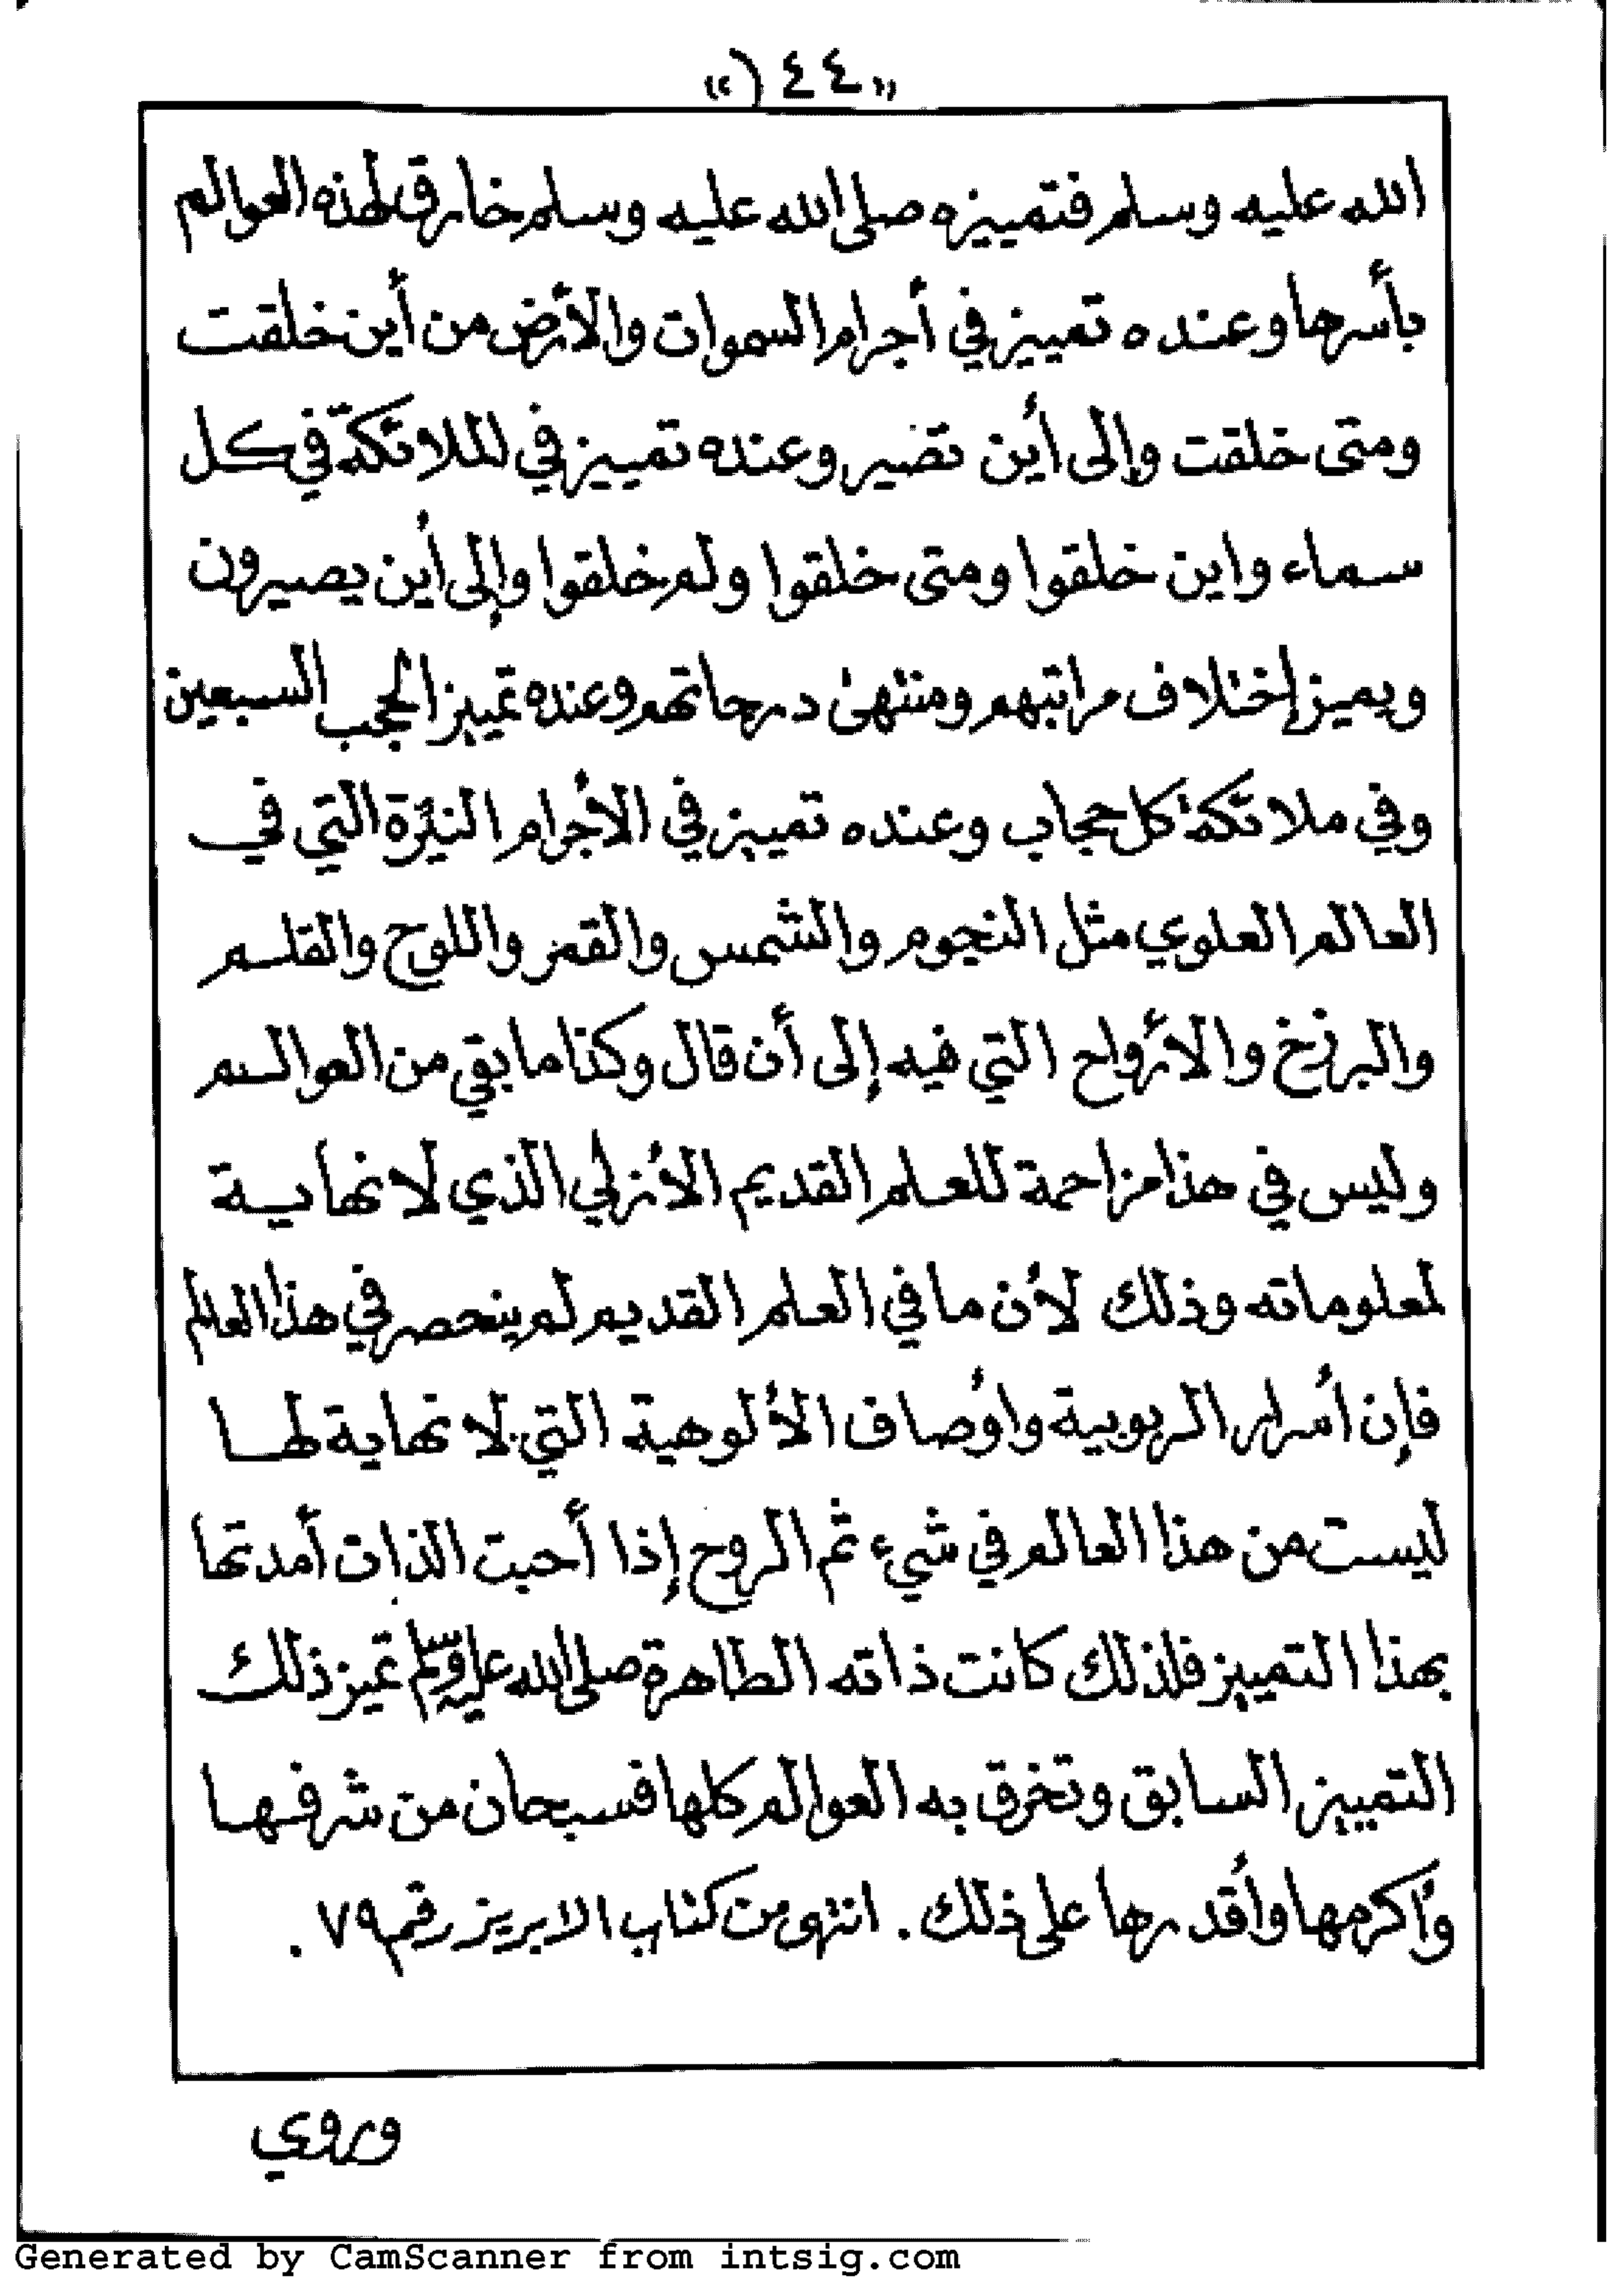 «٤٤)»
الله عليه وسلم فتمييزه صلى الله عليه وسلم خارق لهذه العوالم
بأسرها وعنده تمييز في أجرام السموات والأرض من أين خلقت
ومتى خلقت وإلى أين تضير وعنده تمييز في الملائكة في كل
سماء واين خلقوا ومتى خلقوا ولم خلقوا وإلى أين يصيرون
ويميز إختلاف مراتبهم ومنتهى درجاتهم وعنده تمييز الحجب السبعين
وفي ملائكة كل حجاب وعنده تمييز في الأجرام النيرة التي في
العالم العلوي مثل النجوم والشمس والقمر واللوح والقلم
والبرزخ والأرواح التي فيه إلى أن قال وكذا ما بقي من العوالم
وليس في هذا مزاحمة للعلم القديم الأزلي الذي لا نهاية
لمعلوماته وذلك لأن ما في العلم القديم لم ينحصر في هذا العالم
فإن أسرار الربوبية وأوصاف الألوهية التي لا نهاية لها
ليست من هذا العالم في شيء ثم الروح إذا أحبت الذات أمدتها
بهذا التمييز فلذلك كانت ذاته الطاهرة صلى الله عليه وسلم تميز ذلك
التمييز السابق وتخرق به العوالم كلها فسبحان من شرفها
وأكرمها وأقدرها على ذلك . انتهى من كتاب الابريز رقم ٧٩ .
وروي
Generated by CamScanner from intsig.com